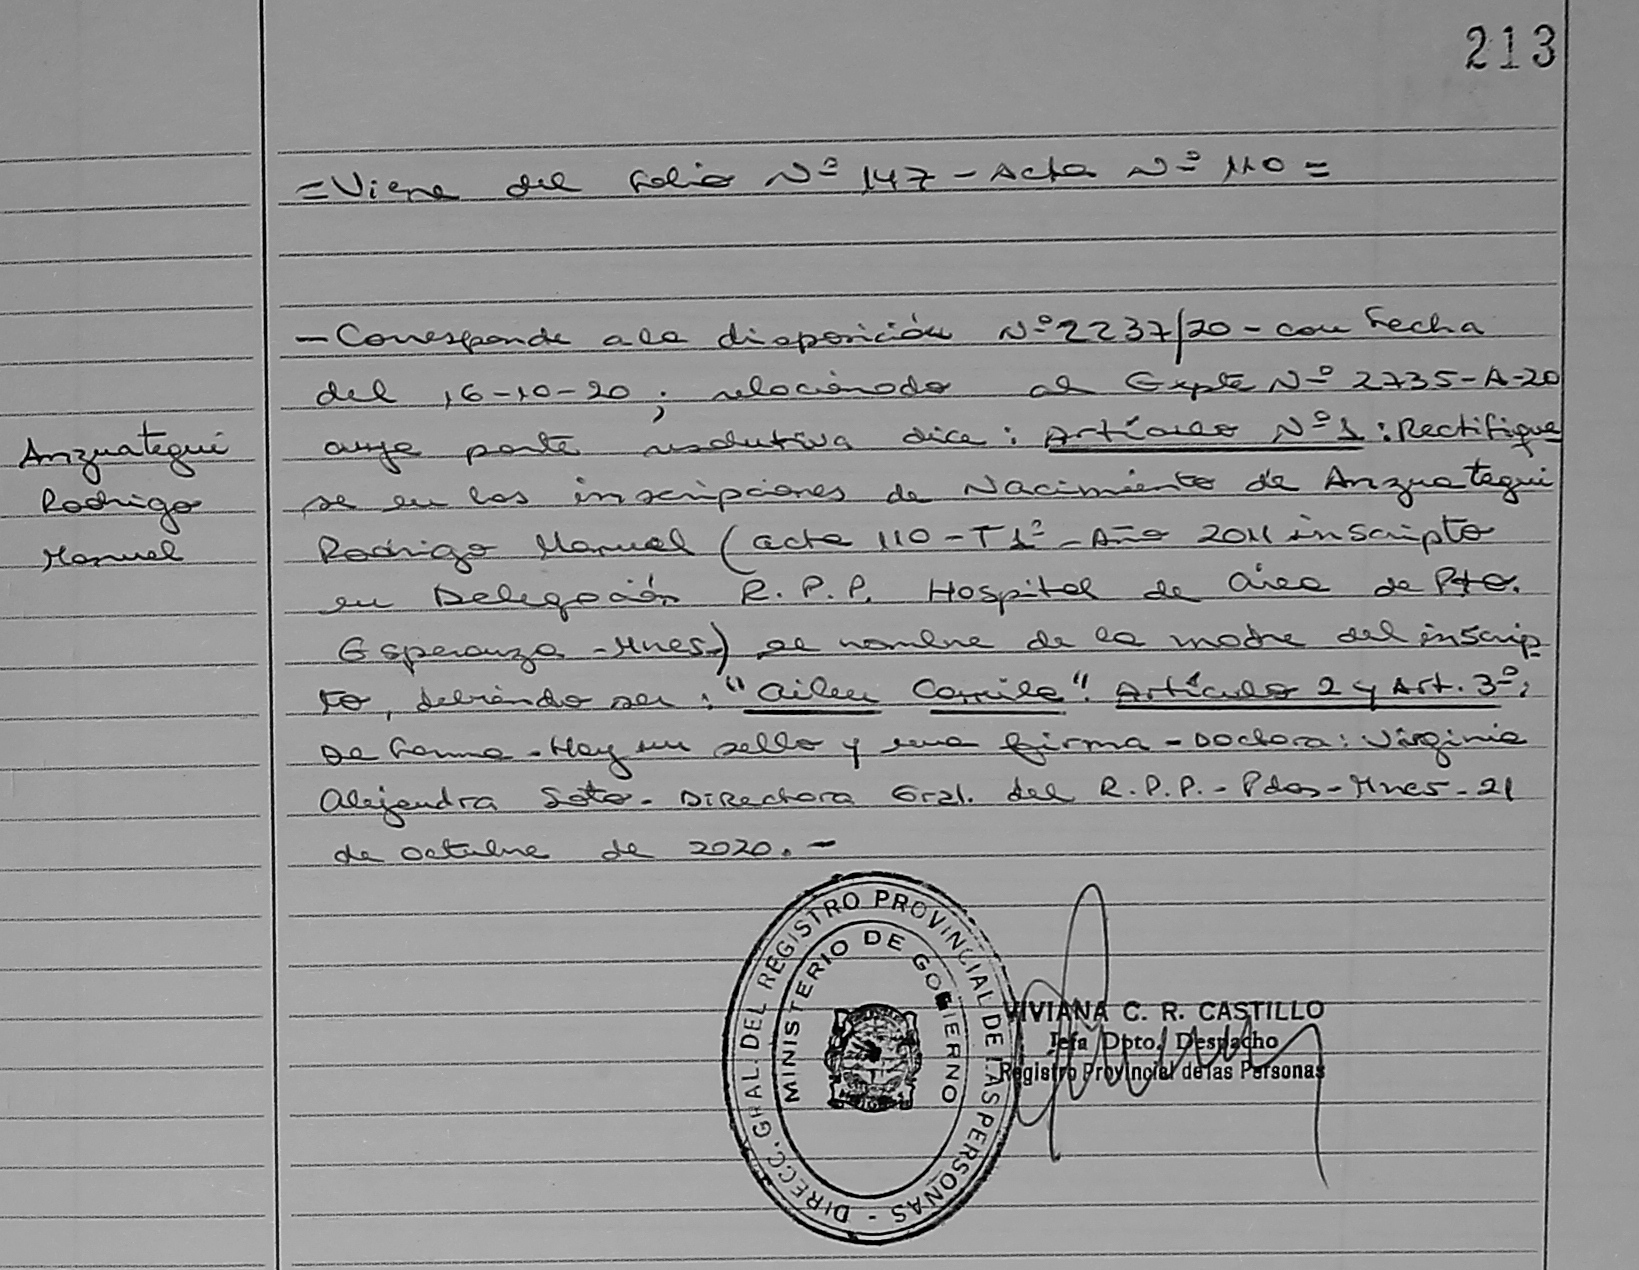 213
=Viene del folio Nº 147 - Acta Nº 110 =
- Corresponde a la disposición Nº 2237/20 - con fecha
del 16-10-20; relacionado al Expte Nº 2735-A-20
cuya parte resolutiva dice: Artículo Nº 1: Rectifique
se en las inscripciones de Nacimiento de Anzuategui
Rodrigo Manuel (acta 110 - T1º - Año 2011 inscripto
en Delegación R.P.P. Hospital de Area de Pto.
Esperanza - Mnes.) el nombre de la madre del inscrip
to, debiendo ser: "Ailen Camila". Artículo 2 y Art. 3º:
De forma - Hay un sello y una firma - Doctora: Virginia
Alejandra Soto - Directora Gral. del R.P.P. - Pdas - Mnes - 21
de octubre de 2020. -
Anzuategui
Rodrigo
Manuel
DIRECC. GRAL. DEL REGISTRO PROVINCIAL DE LAS PERSONAS -
MINISTERIO DE GOBIERNO
VIVIANA C. R. CASTILLO
Jefa Dpto. Despacho
Registro Provincial de las Personas